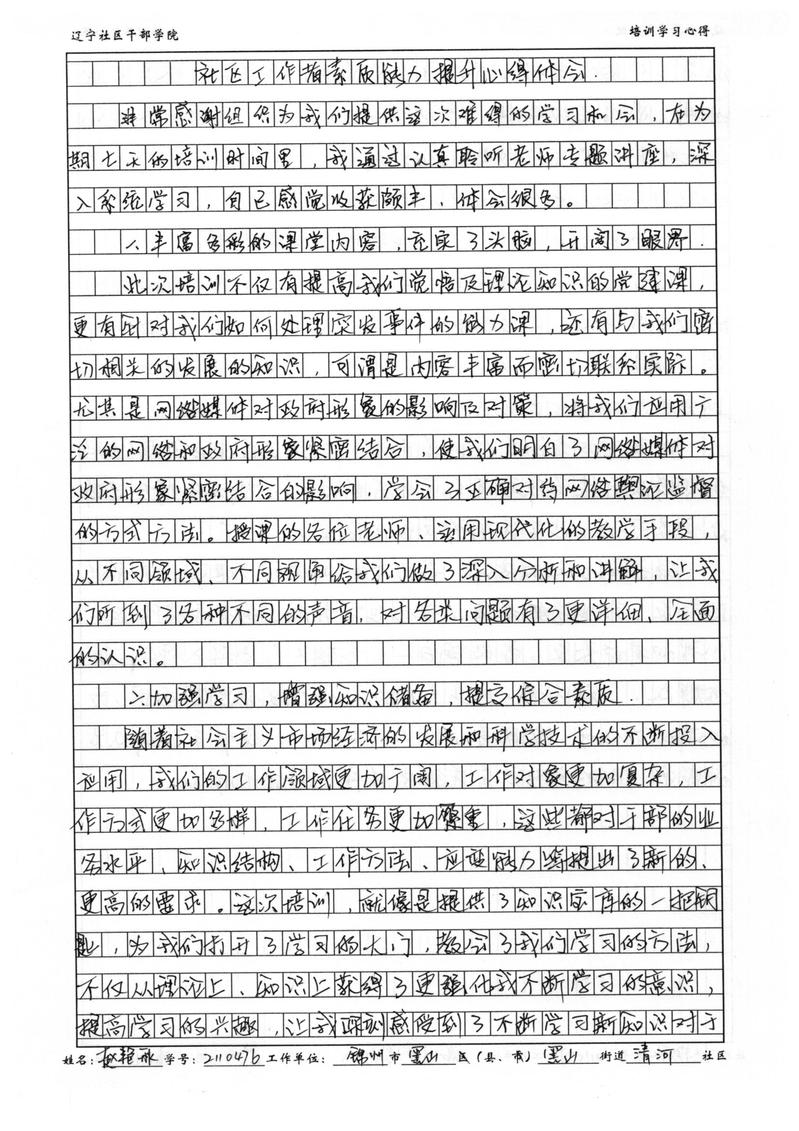 辽宁社区干部学院 培训学习心得
社区工作者素质能力提升心得体会.
非常感谢组织为我们提供这次难得的学习和会,在为
期七天的培训时间里,我通过认真聆听老师专题讲座,深
入系统学习,自己感觉收获颇丰、体会很多。
一.丰富多彩的课堂内容,充实了头脑,开阔了眼界.
此次培训不仅有提高我们觉悟及理论知识的党建课,
更有针对我们如何处理突发事件的能力课,还有与我们密
切相关的发展的知识,可谓是内容丰富而密切联系实际。
尤其是网络媒体对政府形象的影响及对策,将我们应用广
泛的网络和政府形象紧密结合,使我们明白了网络媒体对
政府形象紧密结合的影响,学会了正确对待网络舆论监督
的方式方法。授课的各位老师、运用现代化的教学手段,
从不同领域、不同视角给我们做了深入分析和讲解,让我
们听到了各种不同的声音,对各类问题有了更详细、全面
的认识。
二.加强学习,增强知识储备,提高综合素质.
随着社会主义市场经济的发展和科学技术的不断投入
应用,我们的工作领域更加广阔,工作对象更加复杂,工
作方式更加多样,工作任务更加繁重,这些都对干部的业
务水平、知识结构、工作方法、应变能力等提出了新的、
更高的要求。这次培训,就像是提供了知识宝库的一把钥
匙,为我们打开了学习的大门,教会了我们学习的方法,
不仅从理论上、知识上获得了更强化我不断学习的意识,
提高学习的兴趣,让我深刻感受到了不断学习新知识对于
姓名:赵艳 学号:2110476 工作单位:锦州市 黑山 区(县、市) 黑山 街道 清河 社区